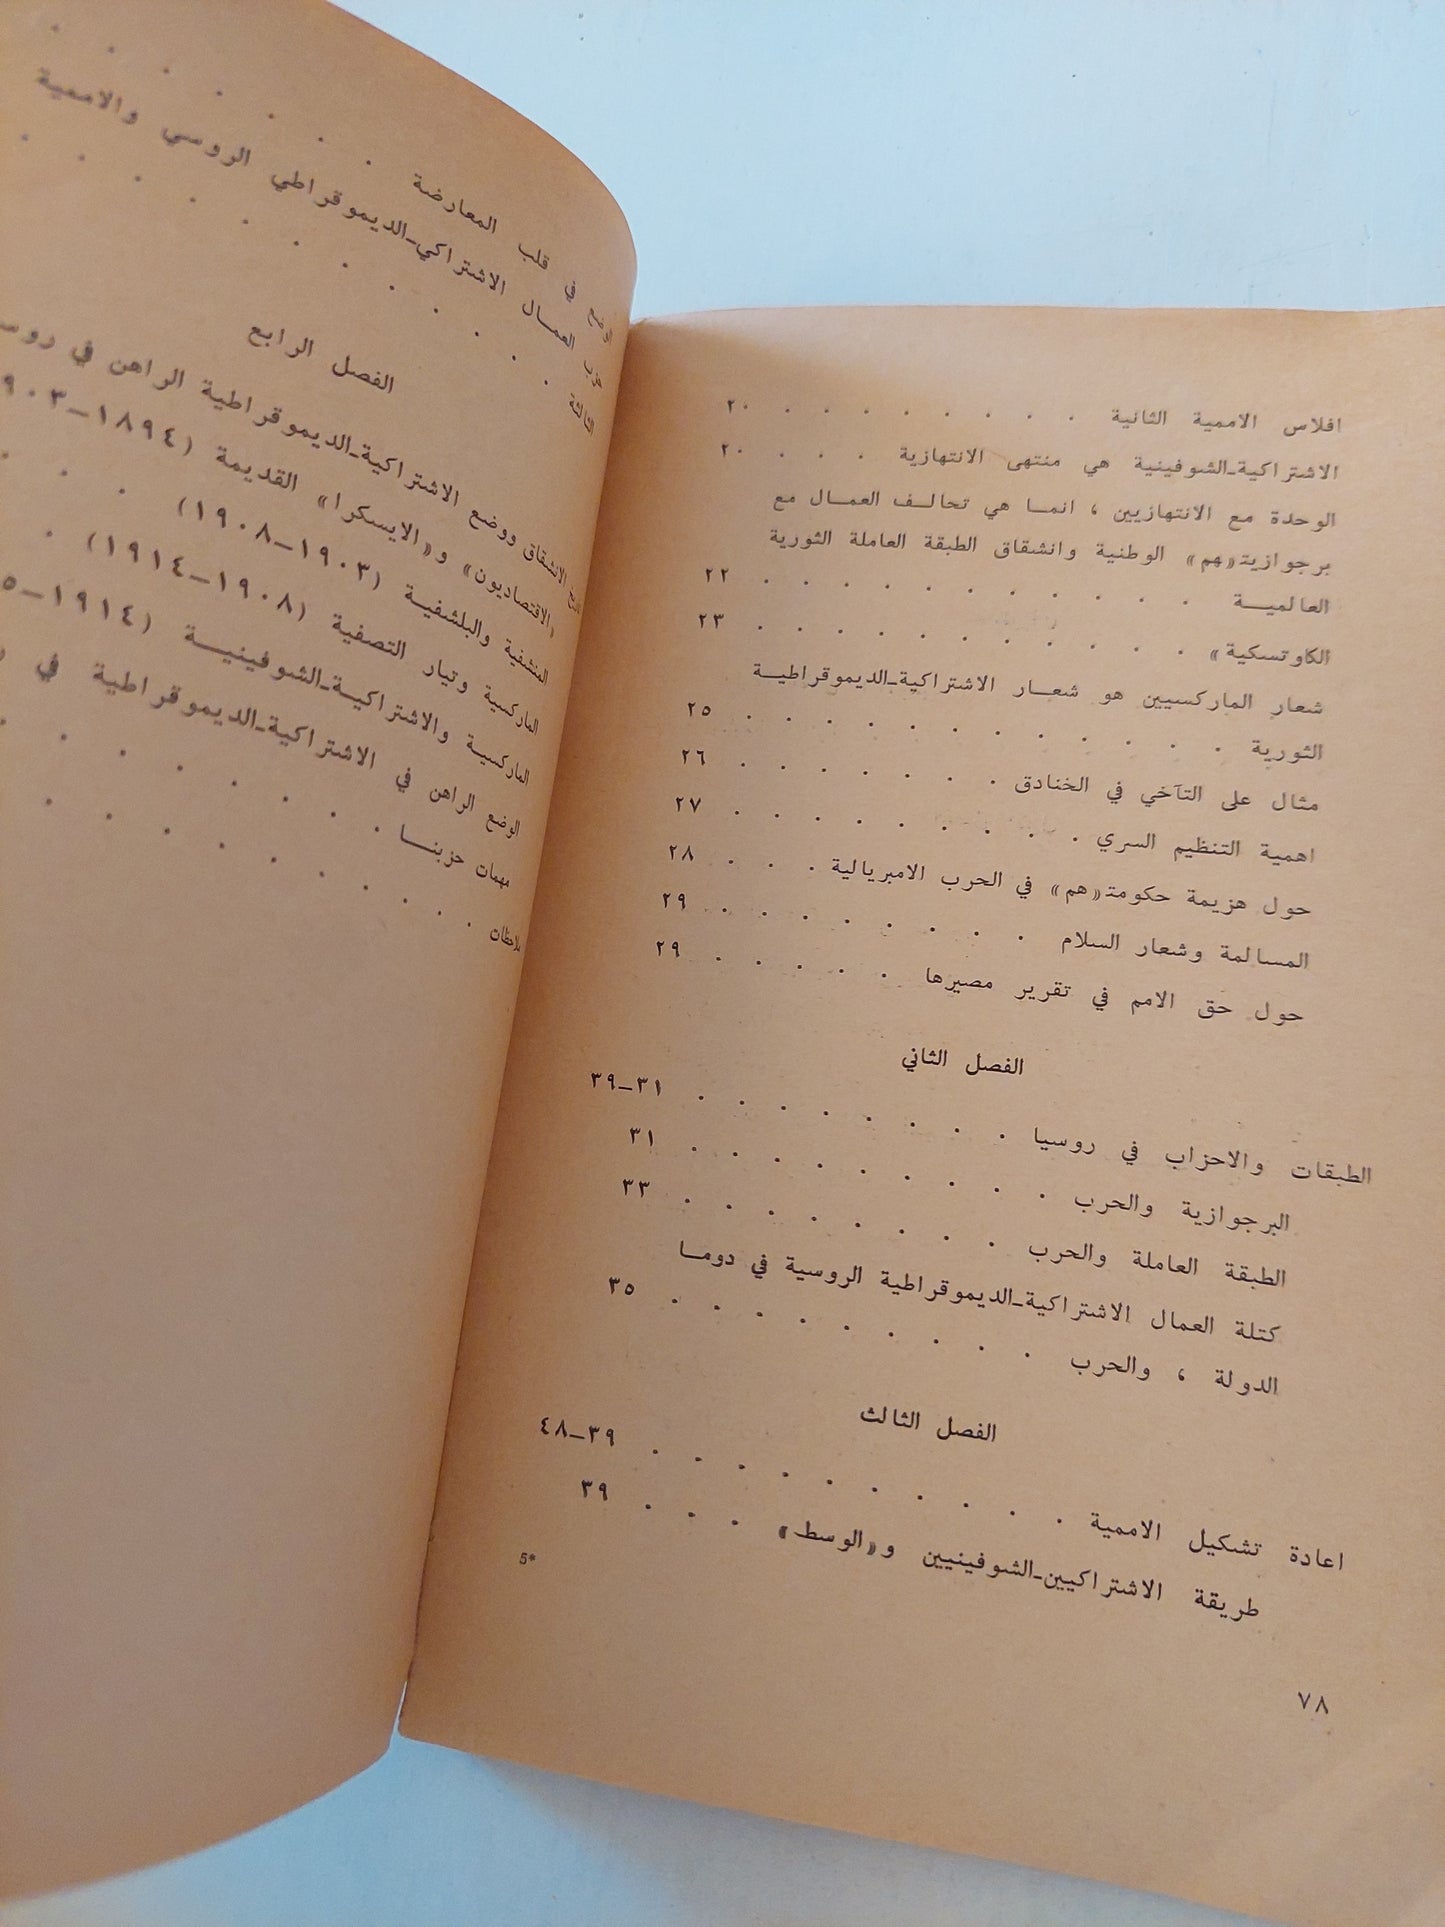 افلاس الاممية الثانية . . . . . . . . . ٢٠
الاشتراكية_الشوفينية هي منتهى الانتهازية . . . . ٢٠
الوحدة مع الانتهازيين ، انمـا هي تحالـف العمـال مع
برجوازيتـ«هم» الوطنية وانشقاق الطبقة العاملة الثورية
العالميـة . . . . . . . . . . . ٢٢
الكاوتسكية» . . . . . . . . . . . ٢٣
شعار الماركسيين هو شعـار الاشتراكية_الديموقراطيـة
الثورية . . . . . . . . . . . . ٢٥
مثال على التآخي في الخنادق . . . . . . . ٢٦
اهمية التنظيم السري . . . . . . . . . ٢٧
حول هزيمة حكومتـ«هم» في الحرب الامبريالية . . . ٢٨
المسالمة وشعار السلام . . . . . . . . ٢٩
حول حق الامم في تقرير مصيرها . . . . . ٢٩
الفصل الثاني
الطبقات والاحزاب في روسيا . . . . . . . . ٣١_٣٩
البرجوازية والحرب . . . . . . . . . ٣١
الطبقة العاملة والحرب . . . . . . . . ٣٣
كتلة العمال الاشتراكية_الديموقراطية الروسية في دومـا
الدولة ، والحرب . . . . . . . . . ٣٥
الفصل الثالث
اعادة تشكيل الاممية . . . . . . . . . . ٣٩_٤٨
طريقة الاشتراكيين_الشوفينيين و«الوسط» . . . ٣٩
5*
٧٨
في قلب المعارضة . . . . . . .
حزب العمـال الاشتراكي_الديموقراطي الروسي والاممية
الثالثة . . . . . . . . . .
الفصل الرابع
الانشقاق ووضع الاشتراكية_الديموقراطية الراهن في
«الاقتصاديون» و«الايسكرا» القديمة (١٨٩٤_
المنشفية والبلشفية (١٩٠٣_١٩٠٨) . . .
الماركسية وتيار التصفية (١٩٠٨_١٩١٤) .
الماركسية والاشتراكيـة_الشوفينيـة (١٩١٤_
الوضع الراهن في الاشتراكية_الديموقراطية في
مهمات حزبنـا . . . . . . . .
ملاحظات . . . . . . . .